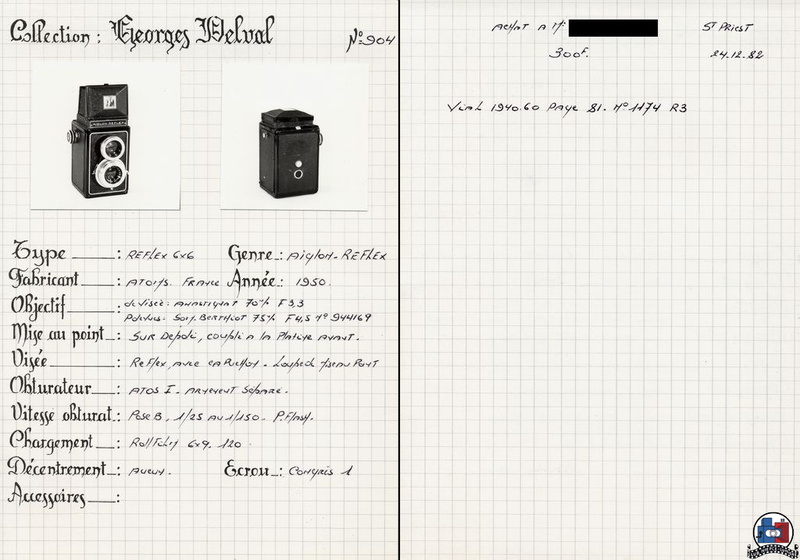 Collection : Georges Delval
N° 904
Type : REFLEX 6x6 Genre : AIGLON-REFLEX
Fabricant : ATOMS. FRANCE Année : 1950.
Objectif : de Visée: ANASTIGMAT 70% F3,3
SOM. BERTHIOT 75% F4,5 N° 944169
Mise au point : SUR Depoli, couplé A la Platine AVANT.
Visée : Reflex, avec CAPUCHON -
Obturateur : ATOS I - ARMEMENT Séparé.
Vitesse obturat. : Pose B, 1/25 AU 1/150. P.Flash.
Chargement : Rollfilm 6x9. 120
Décentrement : AUCUN. Ecrou : CONGRES 1
Accessoires :
ACHAT A Mr ST PRIEST
300F. 24.12.82
Vial 1940.60 Page 81. N° 1174 R3